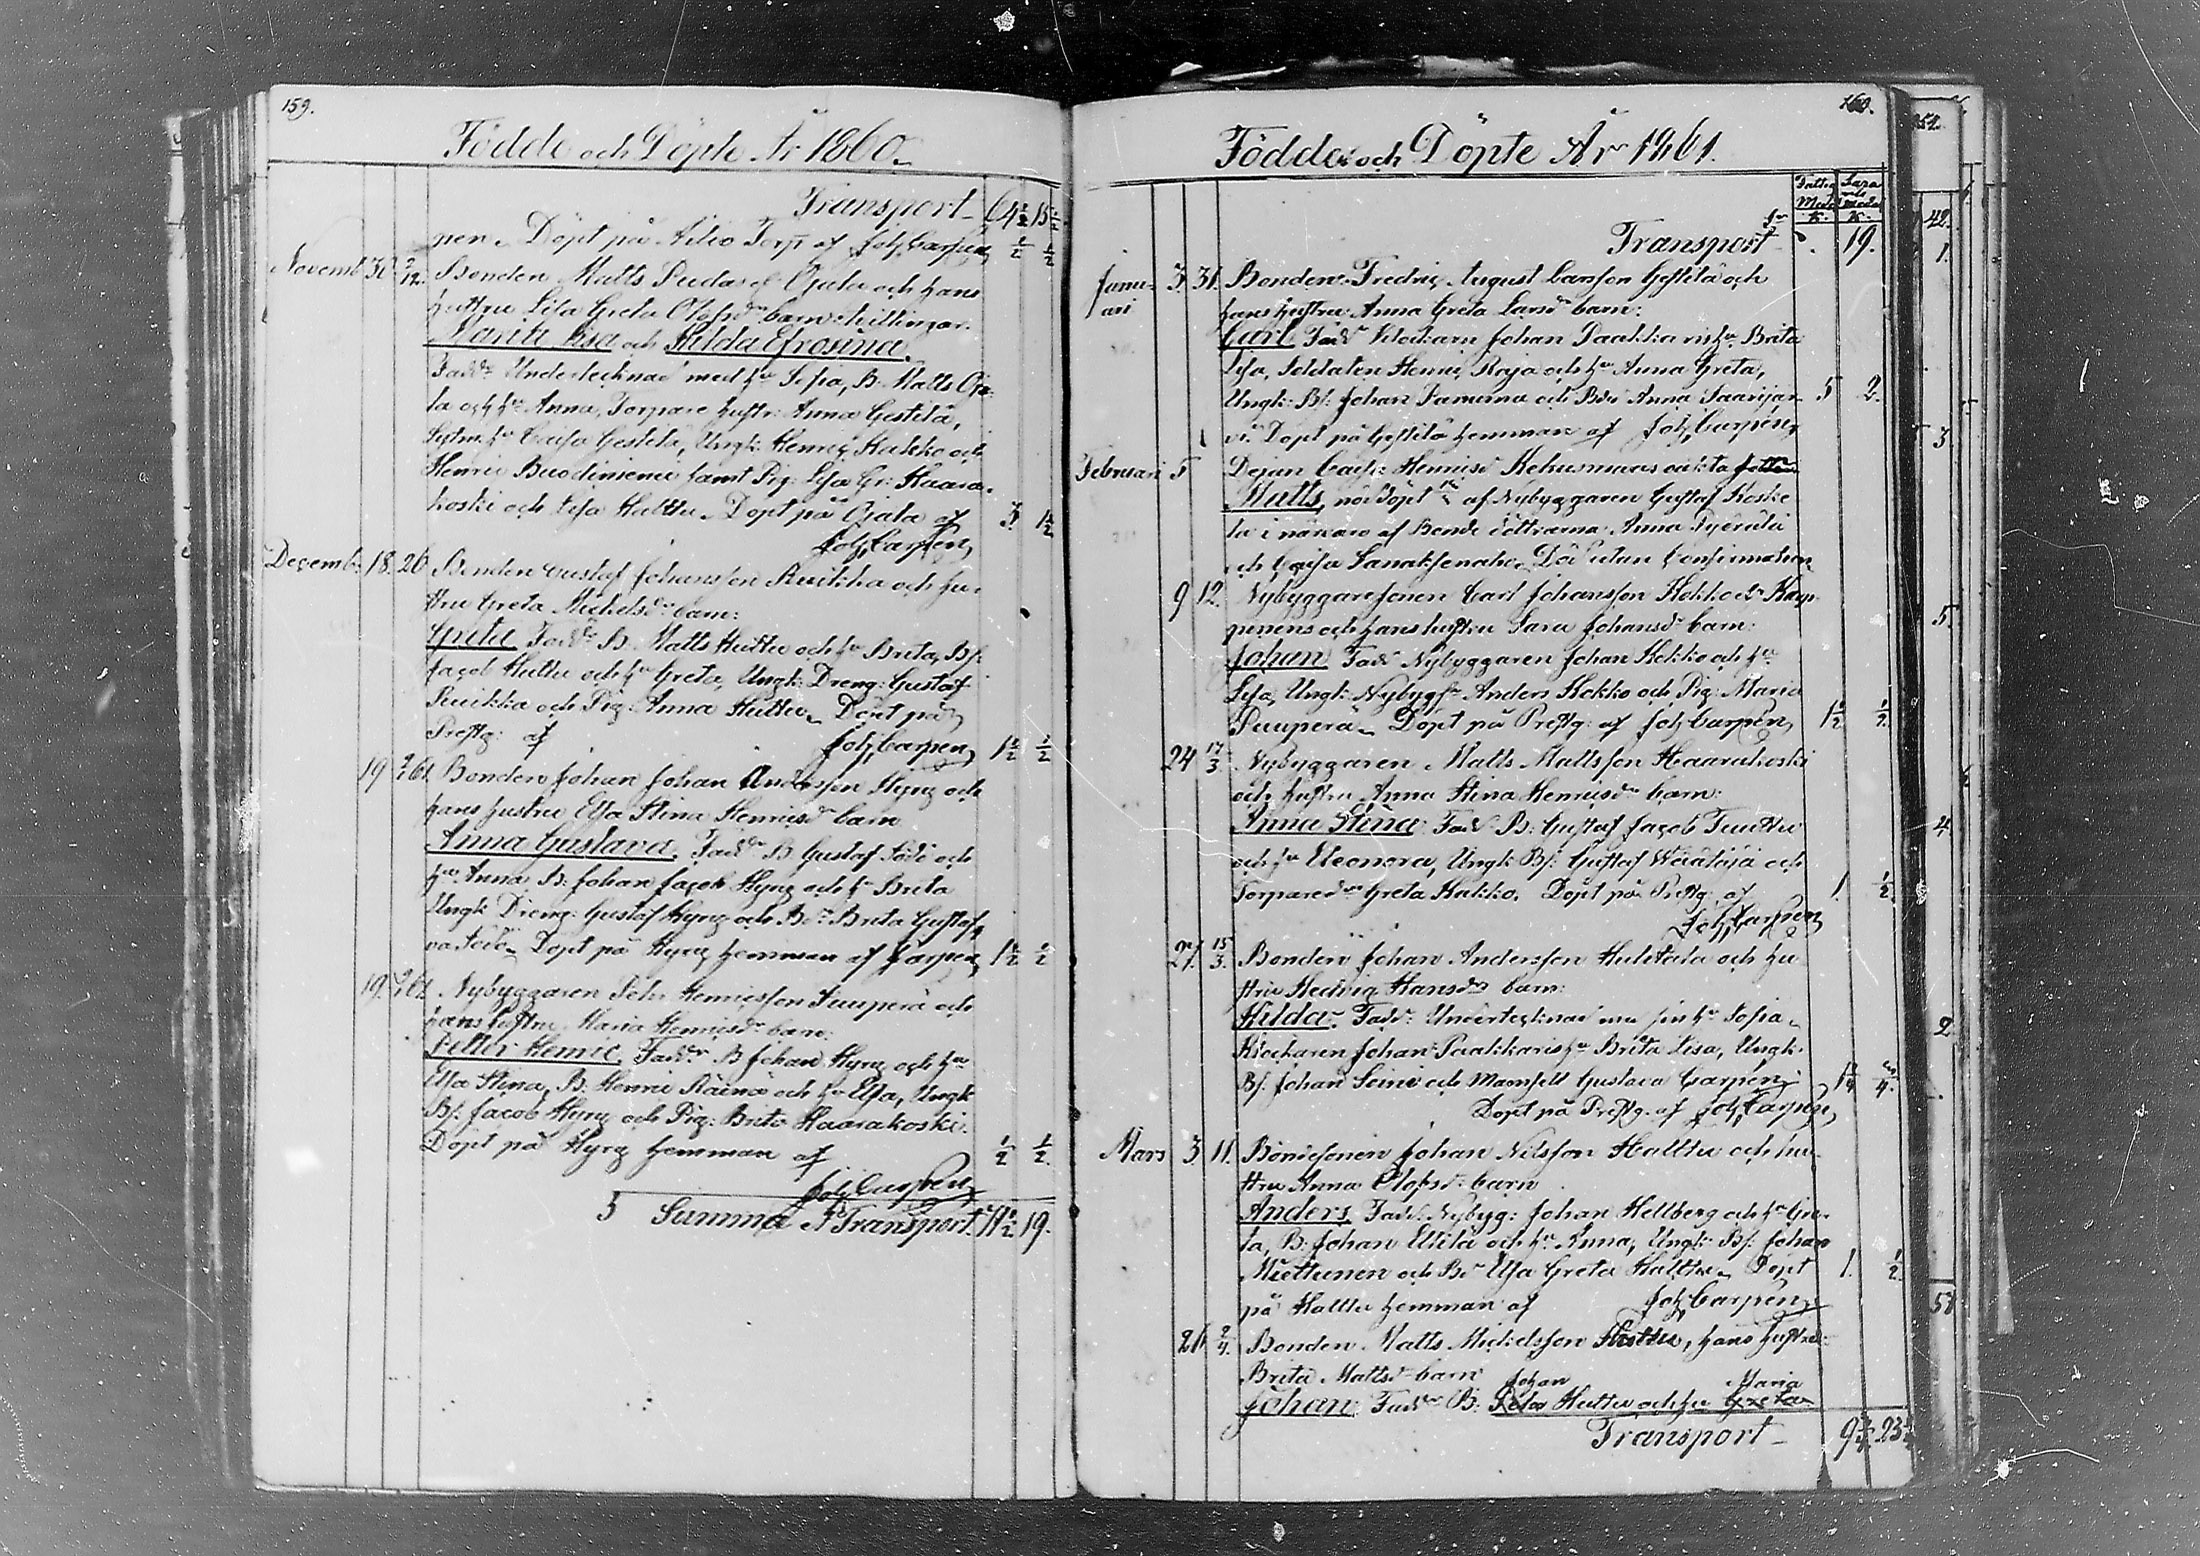 159.
Födde och Döpte År 1860.
Transport 64½ 15½
pen. Döpt på Torp af Joh Carpen ½ ½
Novemb 30 2/12. Bonden Matts Ojala och hans
hustru Lisa Greta Olofsdr barn: tvillingar.
Maria Lisa och Hilda Efrosina.
Faddr Undertecknad med hu Sofia, B. Matts Oja-
la och hu Anna, Torpare hustr: Anna Gestilä,
hu Caisa Gestilä, Ungk: Henric Hakko och
Henric samt Pig: Lisa Gr: Haara-
koski och Lisa Halttu. Döpt på Ojala af 3 1½
Joh Carpen
Decemb. 18. 26 Bonden Gustaf Johansson Ruikka och hu-
stru Greta Michelsdr barn:
Greta Faddr B. Matts Huttu och hu Brita, Bs:
Jacob Huttu och hu Greta, Ungk: Dreng: Gustaf
Ruikka och Pig: Anna Huttu. Döpt på
Prestg: af Joh Carpen 1½ ½
19 61. Bonden Johan Johan Andersson Hyry och
hans hustru Elsa Stina Henricsdr barn
Anna Gustava. Faddr B Gustaf Södö och
hu Anna, B. Johan Jacob Hyry och hu Brita
Ungk Dreng: Gustaf Hyry och Bdr Brita Gustaf-
va Södö. Döpt på Hyry hemman af Carpen 1½ ½
19. 61 Nybyggaren Petr Henricsson Puuperä och
hans hustru Maria Henricsdr barn:
Petter Henric. Faddr B Johan Hyry och hu
Elsa Stina, B. Henric Räinä och hu Elsa, Ungk
Bs: Jacob Hyry och Pig: Brita Haarakoski.
Döpt på Hyry hemman af ½ ½
Joh Carpen
5 Summa & Transport. 71½ 19.
160.
Födde och Döpte År 1861.
Transport . 19.
Janu-
ari 3. 31. Bonden Fredric August Larsson Gestilä och
hans hustru Anna Greta Larsdr barn:
Carl Faddr Klockarn Johan Paakkari hu Brita
Lisa, Soldaten Henric Raja och hu Anna Greta,
Ungk: Bs: Johan och Bdr Anna Saarijär- 5 2.
vi. Döpt på Gestilä hemman af Joh Carpen
Februari 5 Pejan Caisa Henricsd Kehusmaas oäkta
Matts, nöddöpt af Nybyggaren Gustaf Koske-
la i närvaro af Bonde döttrarna Anna
och Caisa Lanaksenaho. Död utan Confirmation
9 12. Nybyggaresonen Carl Johansson Kokko
och hans hustru Sara Johansdr barn:
Johan Faddr Nybyggaren Johan Kokko och hu
Lisa, Ungk: Nybygs Anders Kokko och Pig: Maria
Puuperä. Döpt på Prestg: af Joh Carpen 1½ ½
24 17/3. Nybyggaren Matts Mattsson Haarakoski
och hustru Anna Stina Henricsdr barn:
Anna Stina Faddr B: Gustaf Jacob Tuuttu
och hu Eleonora, Ungk: Bs: Gustaf Wäätäjä och
Torparedr Greta Hakko. Döpt på Prestg. af 1. ½
Joh Carpen
27 15/3. Bonden Johan Andersson Huhtala och hu-
stru Hedvig Hansdr barn:
Hilda. Faddr: Undertecknad med sin hu Sofia,
Klockaren Johan Paakkaris hu Brita Lisa, Ungk:
Bs. Johan Leini och Mamsell Gustava Carpen
Döpt på Prestg. af Joh Carpen
Mars 3. 11. Bondesonen Johan Nilsson Halttu och hu-
stru Anna Olofsdr barn
Anders. Faddr Nybyg: Johan Hellberg och hu Gre-
ta, B: Johan Ellilä och hu Anna, Ungk: Bs: Johan
Miettunen och Bdr Elsa Greta Halttu. Döpt 1. ½
på Halttu hemman af Joh Carpen
26 2/4. Bonden Matts Mickelsson Huttu, hans hustru:
Brita Mattsdr barn
Johan Maria
Johan Faddr B: Petter Huttu och hu Greta
Transport 9¾ 23